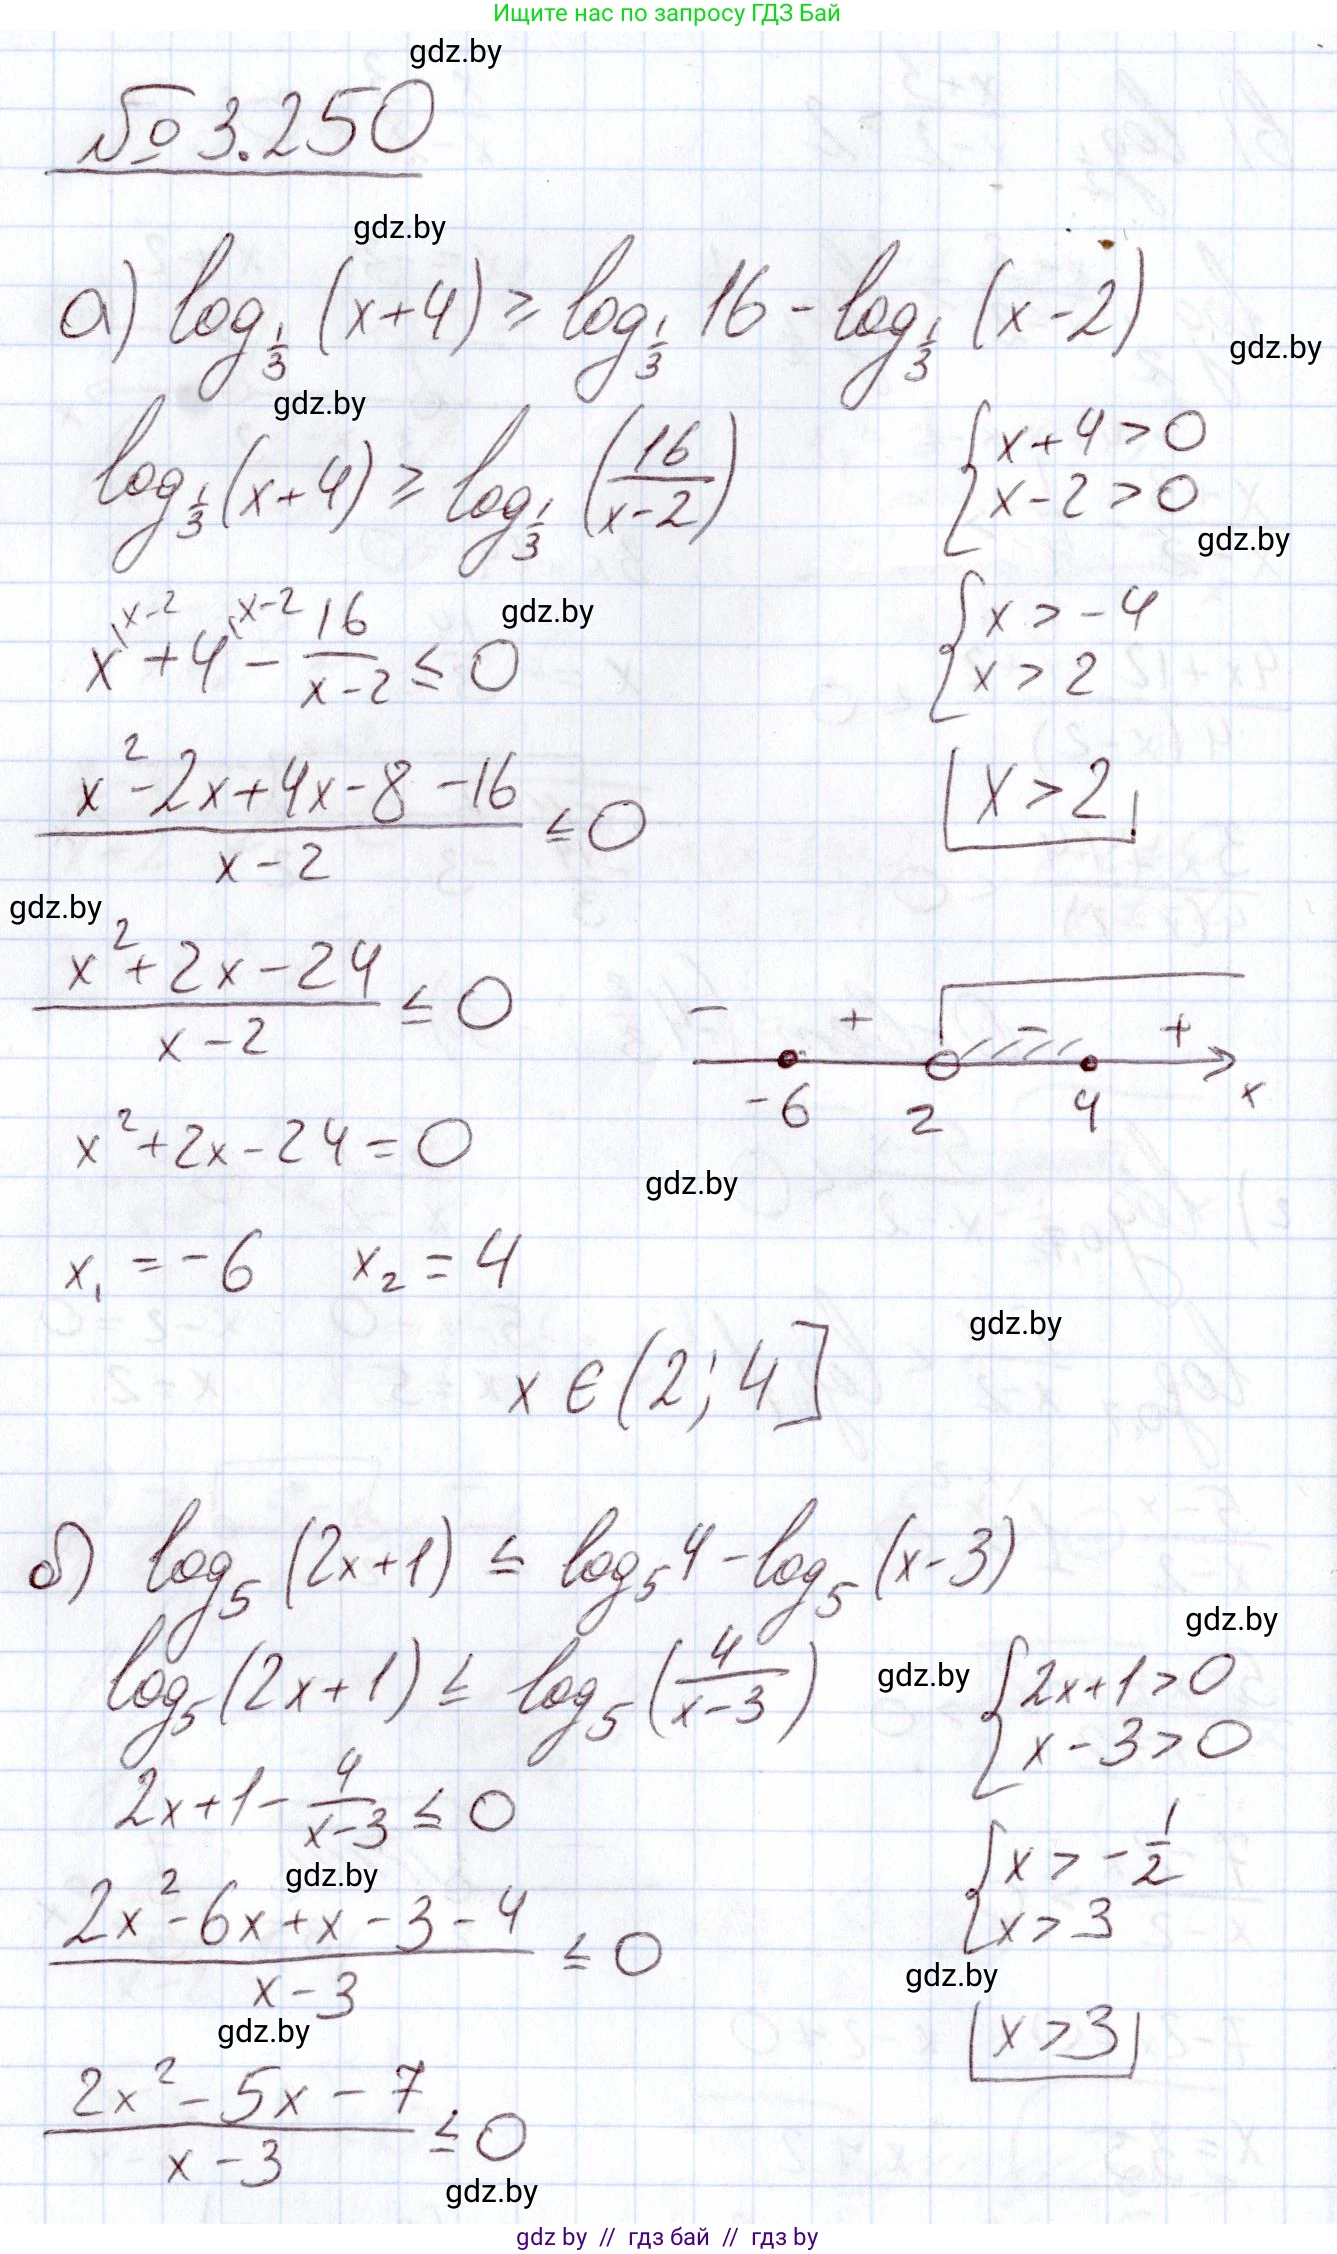 Ищите нас по запросу ГДЗ Бай
gdz.by
№ 3.250
gdz.by
а) log_{1/3} (x+4) ≥ log_{1/3} 16 - log_{1/3} (x-2)
gdz.by
gdz.by
log_{1/3} (x+4) ≥ log_{1/3} (16/(x-2))
{ x+4 > 0
x-2 > 0
gdz.by
x^{(x-2} + 4^{(x-2} - 16/(x-2) ≤ 0
gdz.by
{ x > -4
x > 2
(x²-2x+4x-8-16)/(x-2) ≤ 0
x > 2
gdz.by
(x²+2x-24)/(x-2) ≤ 0
- + - +
-6 2 4 x
x²+2x-24=0
gdz.by
x₁ = -6 x₂ = 4
gdz.by
x ∈ (2; 4]
б) log₅ (2x+1) ≤ log₅ 4 - log₅ (x-3)
gdz.by
log₅ (2x+1) ≤ log₅ (4/(x-3))
gdz.by
{ 2x+1>0
x-3>0
2x+1 - 4/(x-3) ≤ 0
gdz.by
{ x > -1/2
x > 3
(2x²-6x+x-3-4)/(x-3) ≤ 0
gdz.by
gdz.by
x > 3
(2x²-5x-7)/(x-3) ≤ 0
gdz.by
gdz by // гдз бай // гдз by